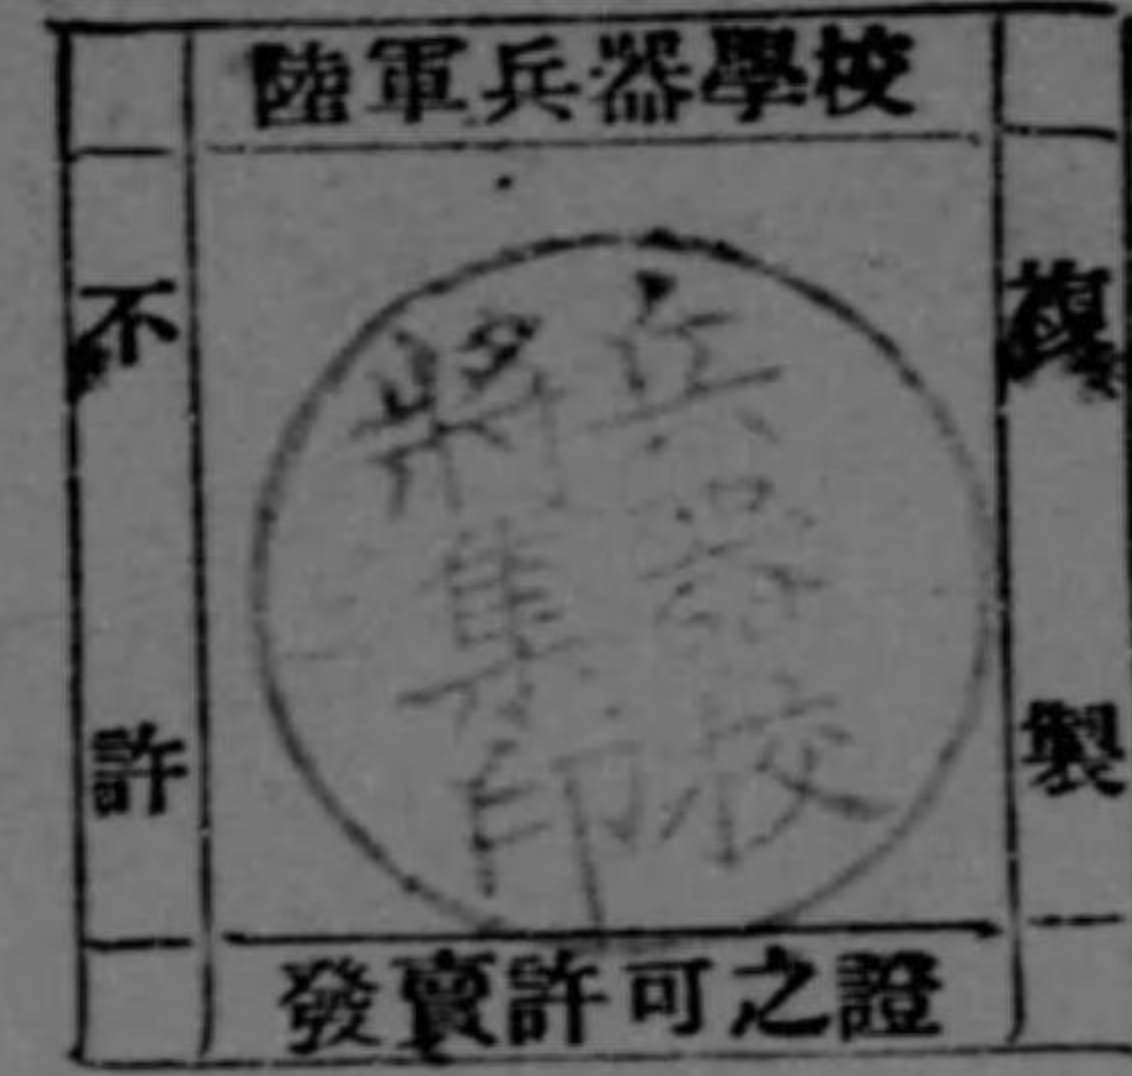 陸軍兵器學校
複製
不許
兵器校
將集印
發賣許可之證